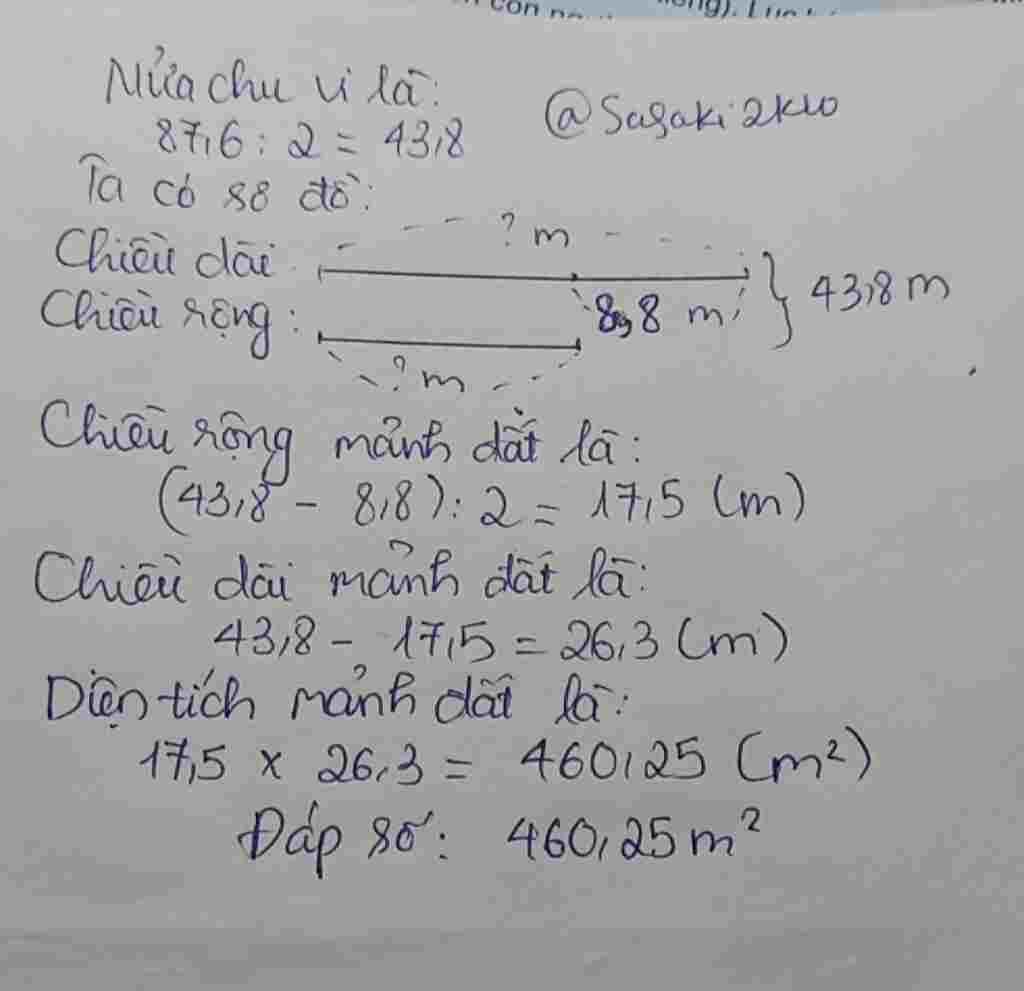 con
Nửa chu vi là:
@Sasaki2k10
87,6 : 2 = 43,8
Ta có sơ đồ:
? m
Chiều dài
8,8 m
43,8 m
Chiều rộng:
? m
Chiều rộng mảnh đất là:
(43,8 - 8,8) : 2 = 17,5 (m)
Chiều dài mảnh đất là:
43,8 - 17,5 = 26,3 (m)
Diện tích mảnh đất là:
17,5 x 26,3 = 460,25 (m²)
Đáp số: 460,25 m²